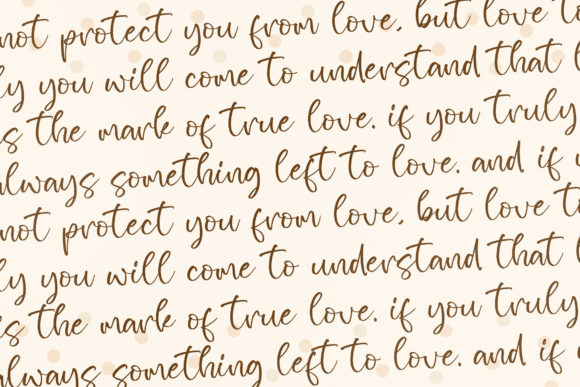 not protect you from love, but love to
ly you will come to understand that l
s the mark of true love. if you truly
always something left to love. and if
not protect you from love, but love to
ly you will come to understand that l
's the mark of true love. if you truly
always something left to love. and if